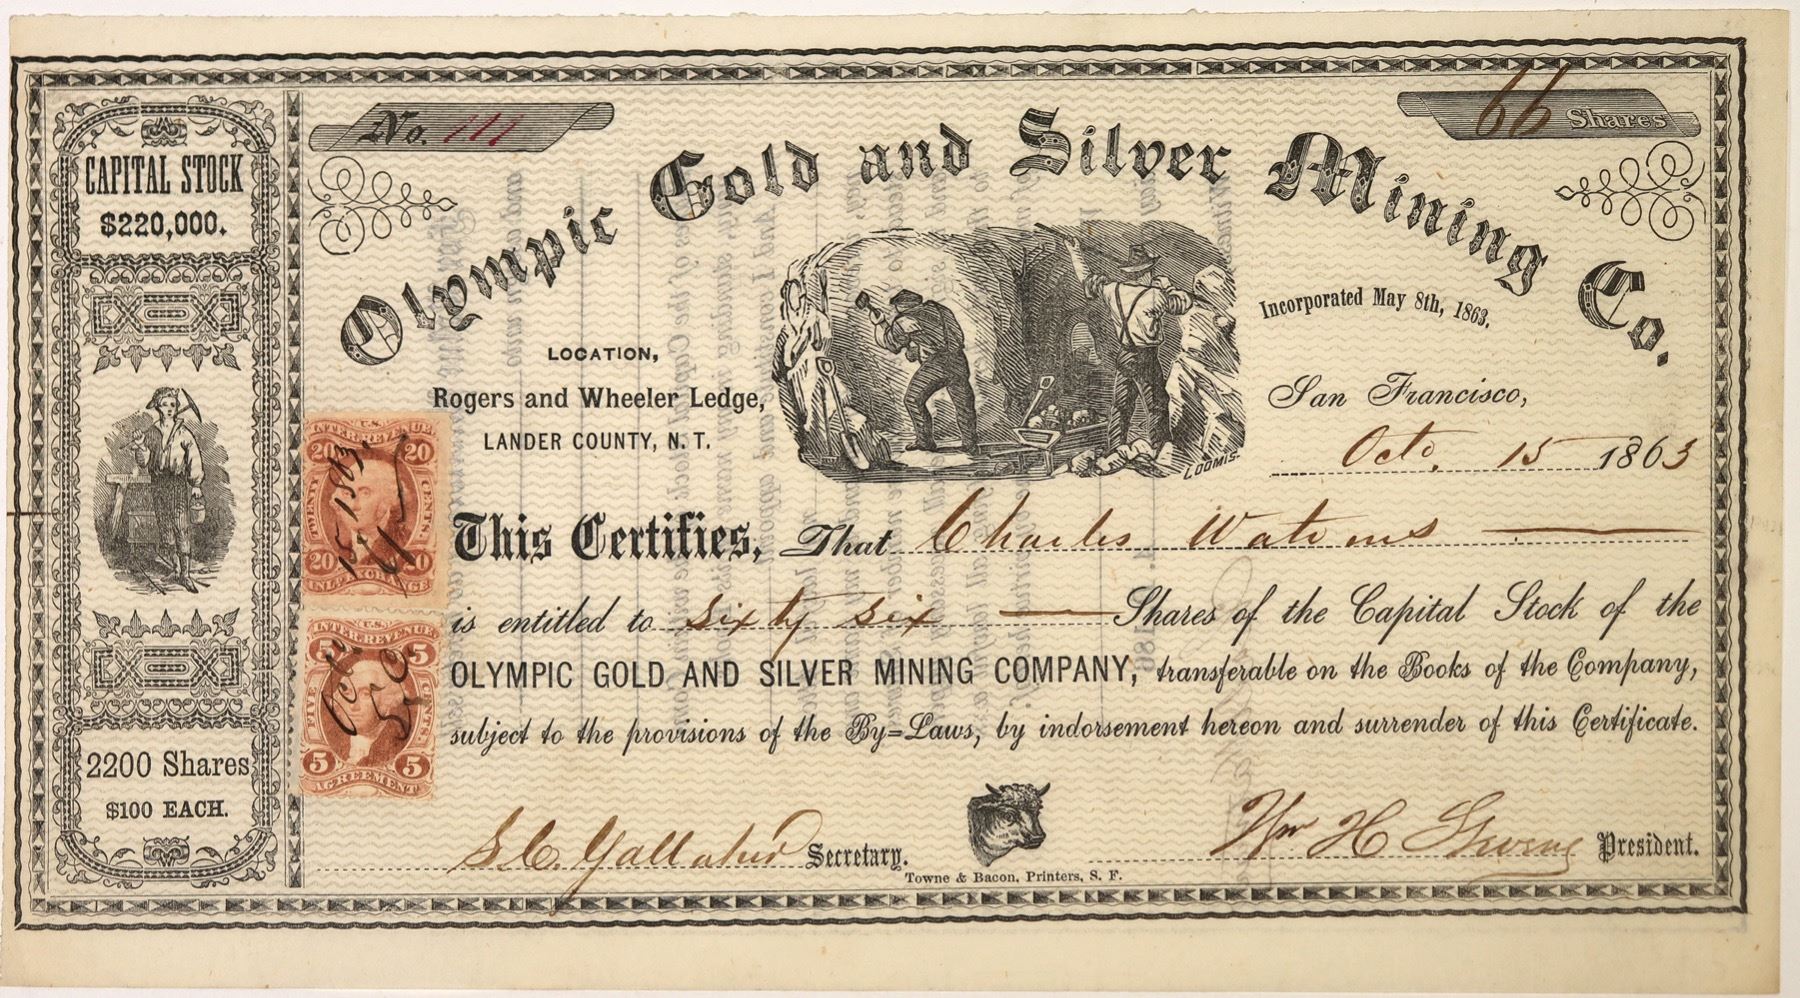 No. 111
66 Shares
Olympic Gold and Silver Mining Co.
Incorporated May 8th, 1863.
LOCATION,
Rogers and Wheeler Ledge,
LANDER COUNTY, N. T.
San Francisco,
Octo. 15 1863
LOOMIS
This Certifies, That Charles Watrous
is entitled to sixty six Shares of the Capital Stock of the
OLYMPIC GOLD AND SILVER MINING COMPANY, transferable on the Books of the Company,
subject to the provisions of the By=Laws, by indorsement hereon and surrender of this Certificate.
Secretary.
Wm H President.
Towne & Bacon, Printers, S. F.
CAPITAL STOCK
$220,000.
2200 Shares
$100 EACH.
U.S.
INTER. REVENUE
20 20
TWENTY CENTS.
20 20
INL'D EXCHANGE
15. 1863
U.S.
INTER. REVENUE
5 5
FIVE CENTS
5 5
AGREEMENT
Oct